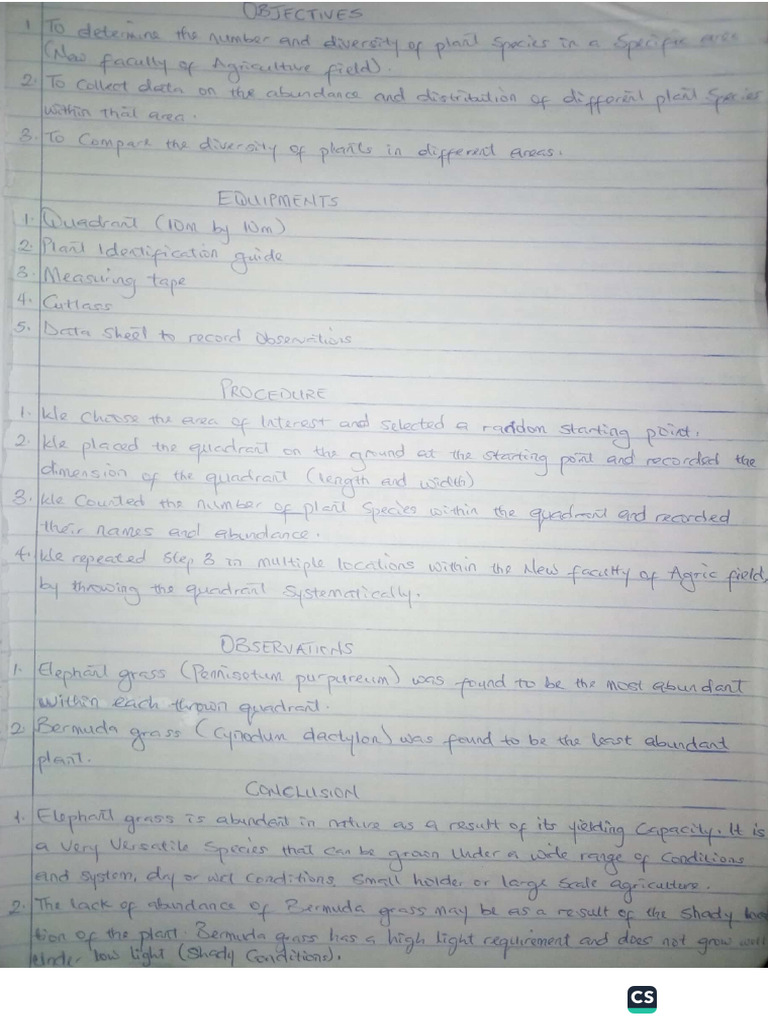 OBJECTIVES
1. To determine the number and diversity of plant species in a specific area
(New faculty of Agriculture field).
2. To collect data on the abundance and distribution of different plant species
within that area.
3. To Compare the diversity of plants in different areas.
EQUIPMENTS
1. Quadrant (10m by 10m)
2. Plant Identification guide
3. Measuring tape
4. Cutlass
5. Data sheet to record observations
PROCEDURE
1. We choose the area of interest and selected a random starting point.
2. We placed the quadrant on the ground at the starting point and recorded the
dimension of the quadrant (length and width)
3. We counted the number of plant species within the quadrant and recorded
their names and abundance.
4. We repeated step 3 in multiple locations within the New faculty of Agric field,
by throwing the quadrant systematically.
OBSERVATIONS
1. Elephant grass (Pennisetum purpureum) was found to be the most abundant
within each thrown quadrant.
2. Bermuda grass (Cynodum dactylon) was found to be the least abundant
plant.
CONCLUSION
1. Elephant grass is abundant in nature as a result of its yielding capacity. It is
a very versatile species that can be grown under a wide range of conditions
and system, dry or wet conditions, small holder or large scale agriculture.
2. The lack of abundance of Bermuda grass may be as a result of the shady loca
tion of the plant. Bermuda grass has a high light requirement and does not grow well
under low light (shady conditions).
CS